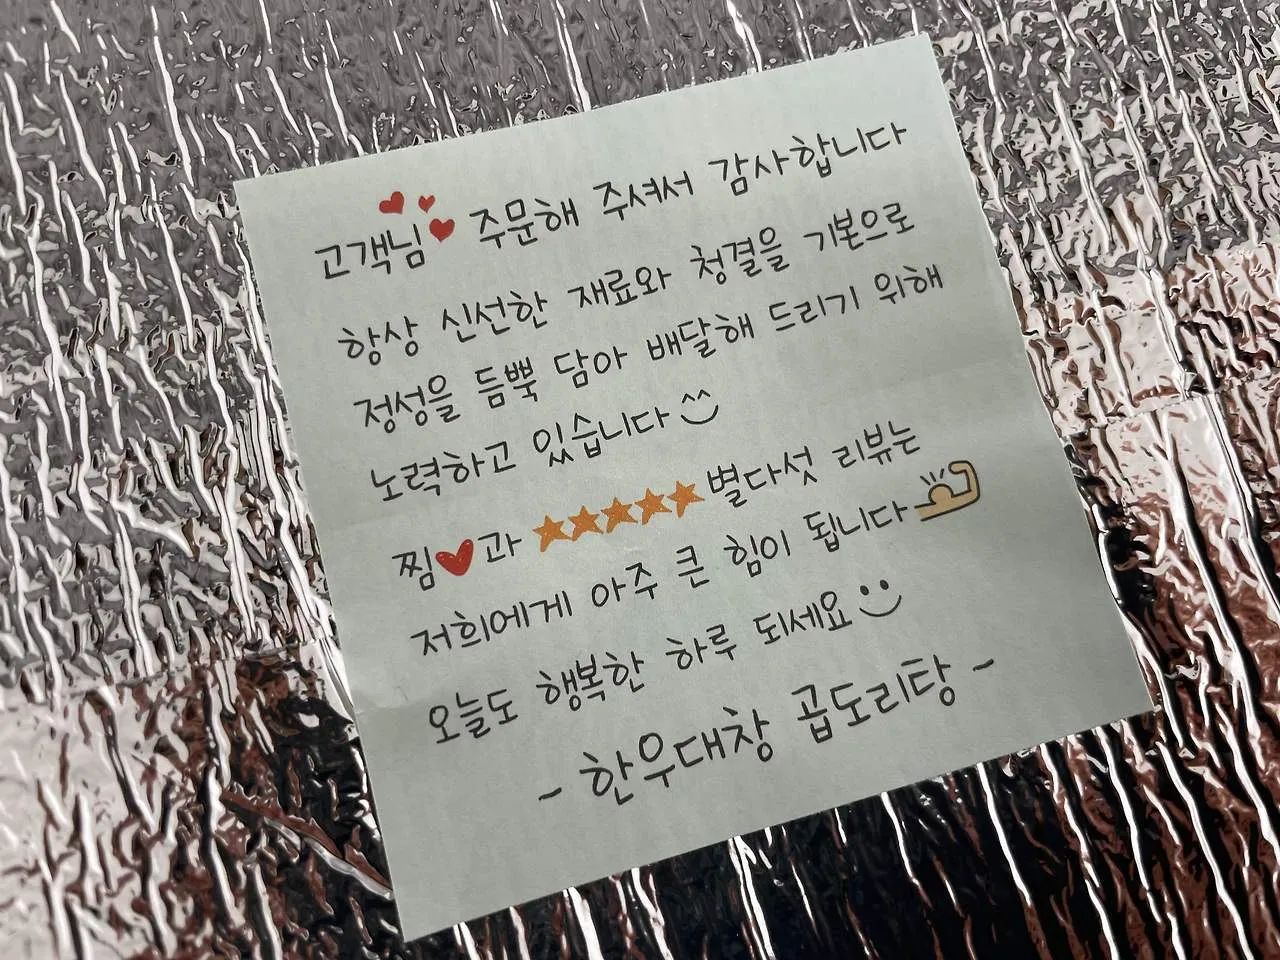 고객님 주문해 주셔서 감사합니다
항상 신선한 재료와 청결을 기본으로
정성을 듬뿍 담아 배달해 드리기 위해
노력하고 있습니다^^
찜♥과 ★★★★★별다섯 리뷰는
저희에게 아주 큰 힘이 됩니다
오늘도 행복한 하루 되세요
- 한우대창 곱도리탕 -